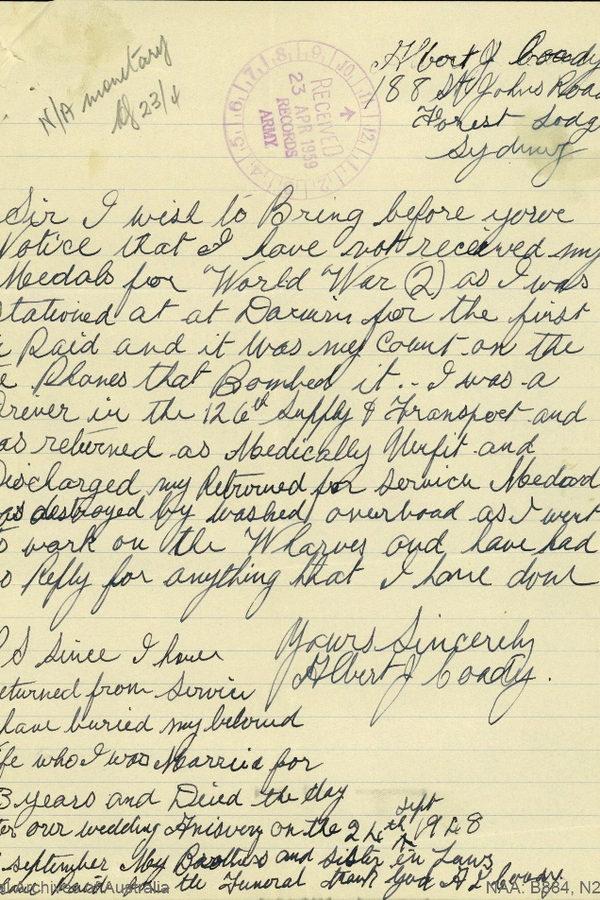 N/A monetary
23/4
RECEIVED
23 APR 1959
RECORDS
ARMY
Albert J Coady
188 St Johns Road
Forest Lodg
Sydney
Sir I wish to Bring before yowe
Notice that I have not received my
Medals for World War (2) as I was
stationed at at Darwin for the first
Raid and it was my Count on the
Planes that Bombed it .. I was a
Drever in the 126th Supply & Transport and
as returned as Medically Unfit and
Discharged my Retrourned for Service
as destroyed by washed overboad as I went
work on the Wharves and have had
o Reply for anything that I have done
Yours Sincerely
Albert J Coady.
P S since I have
eturned from Service
have buried my beloved
fe who I was Married for
3 years and Died the day
ter our wedding Anisvery on the 24th Sept 1948
september My Brothers and Sister in Laws
the Funeral thank you A J Coady.
al Archives of Australia
NAA: B884, N2